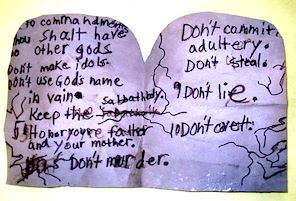 10 commandments
thou shalt have
no other gods
Don't make idols.
Don't use God's name
in vain.
Sabbathday.
Keep the
Honor your father
and your mother.
Don't murder.
Don't commit
adultery.
Don't steal.
9 Don't lie.
10 Don't covet.